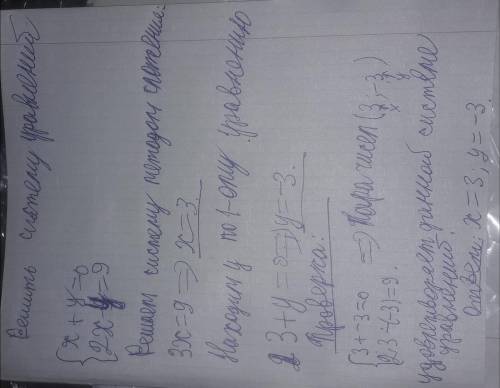 Решить систему уравнений
{x + y = 0
{2x - y = 9
Решаем систему методом сложения:
3x = 9 => x = 3.
Находим y по 1-ому уравнению
3 + y = 0 => y = -3.
Проверка:
{3 + -3 = 0
{2·3 - (-3) = 9. => Пара чисел (3; -3)
x y
удовлетворяет данной системе
уравнений.
Ответ: x = 3, y = -3.